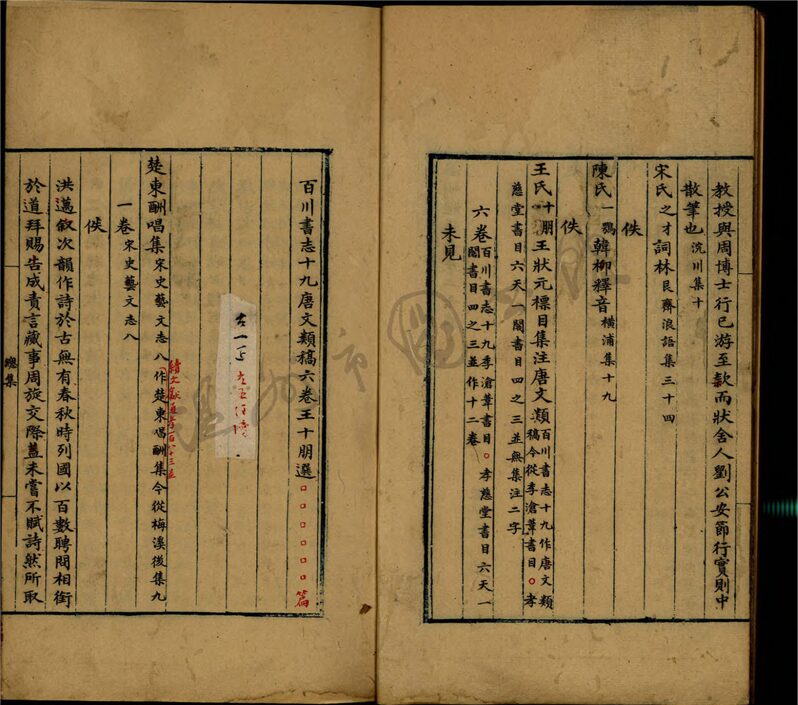 教授與周博士行己游至款而狀舍人劉公安節行實則中
散筆也浣川集十
宋氏之才詞林艮齊浪語集三十四
佚
陳氏一鶚韓柳釋音橫浦集十九
佚
王氏十朋王狀元標目集注唐文類百川書志十九作唐文類
稿今從李滄葦書目○孝
慈堂書目六天一閣書目四之三並無集注二字
六卷百川書志十九李滄葦書目○孝慈堂書目六天一
閣書目四之三並作十二卷
未見
百川書志十九唐文類稿六卷王十朋選○○○○○○○篇
楚東酬唱集宋史藝文志八作楚東唱酬集今從梅溪後集九
一卷宋史藝文志八
佚
洪邁敘次韻作詩於古無有春秋時列國以百數聘問相銜
於道拜賜告成責言蕆事周旋交際蓋未嘗不賦詩然所取
總集